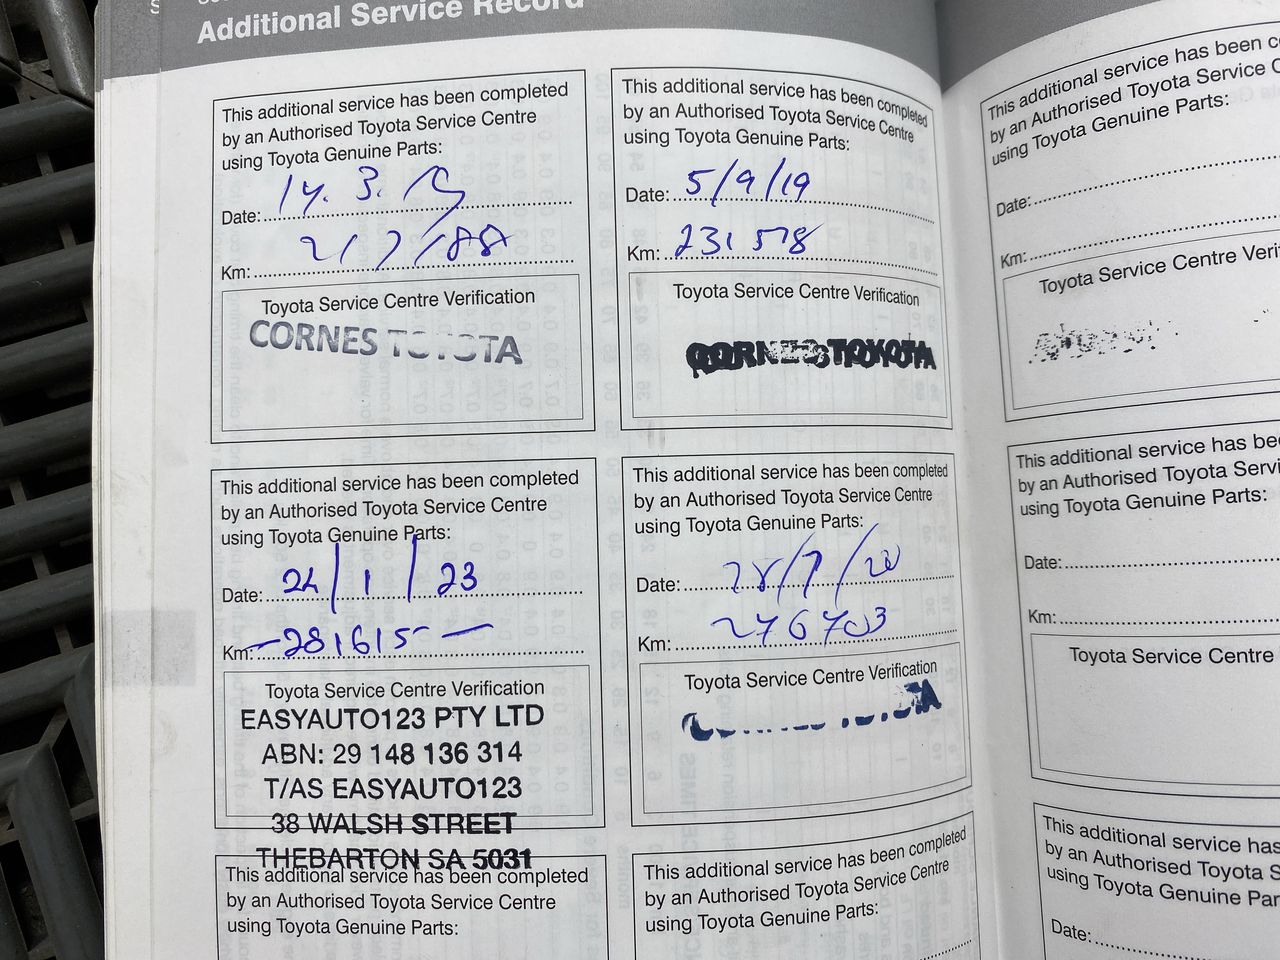 Additional Service Record
This additional service has been completed
by an Authorised Toyota Service Centre
using Toyota Genuine Parts:
Date: 14. 3. 19
Km: 217188
Toyota Service Centre Verification
CORNES TOYOTA
This additional service has been completed
by an Authorised Toyota Service Centre
using Toyota Genuine Parts:
Date: 5/9/19
Km: 231578
Toyota Service Centre Verification
CORNES TOYOTA
This additional service has been completed
by an Authorised Toyota Service Centre
using Toyota Genuine Parts:
Date: 24/1/23
Km: -281615-
Toyota Service Centre Verification
EASYAUTO123 PTY LTD
ABN: 29 148 136 314
T/AS EASYAUTO123
38 WALSH STREET
THEBARTON SA 5031
This additional service has been completed
by an Authorised Toyota Service Centre
using Toyota Genuine Parts:
Date: 28/7/20
Km: 276703
Toyota Service Centre Verification
This additional service has been completed
by an Authorised Toyota Service Centre
using Toyota Genuine Parts:
This additional service has been completed
by an Authorised Toyota Service Centre
using Toyota Genuine Parts:
This additional service has been
by an Authorised Toyota Service
using Toyota Genuine Parts:
Date:
Km:
Toyota Service Centre
This additional service has been
by an Authorised Toyota
using Toyota Genuine Parts:
Date:
Km:
Toyota Service Centre
This additional service has
by an Authorised Toyota
using Toyota Genuine
Date: